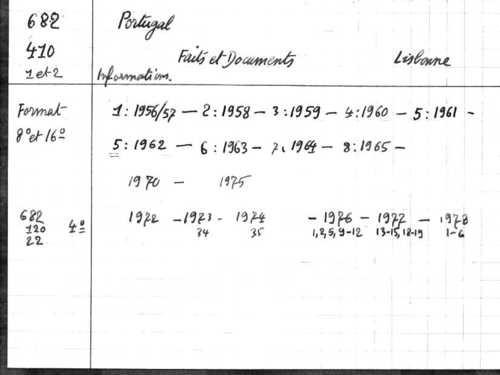 682 Portugal
410 Faits et Documents Lisbonne
1 et 2 Informations.
Format 1 : 1956/57 — 2 : 1958 — 3 : 1959 — 4 : 1960 — 5 : 1961 -
8º et 16º 5 : 1962 — 6 : 1963 - 7 : 1964 - 8 : 1965 —
1970 - 1975
682 4º 1972 - 1973 - 1974 - 1976 - 1977 - 1978
120 34 35 1, 2, 5, 9-12 13-15, 18-19 1-6
22